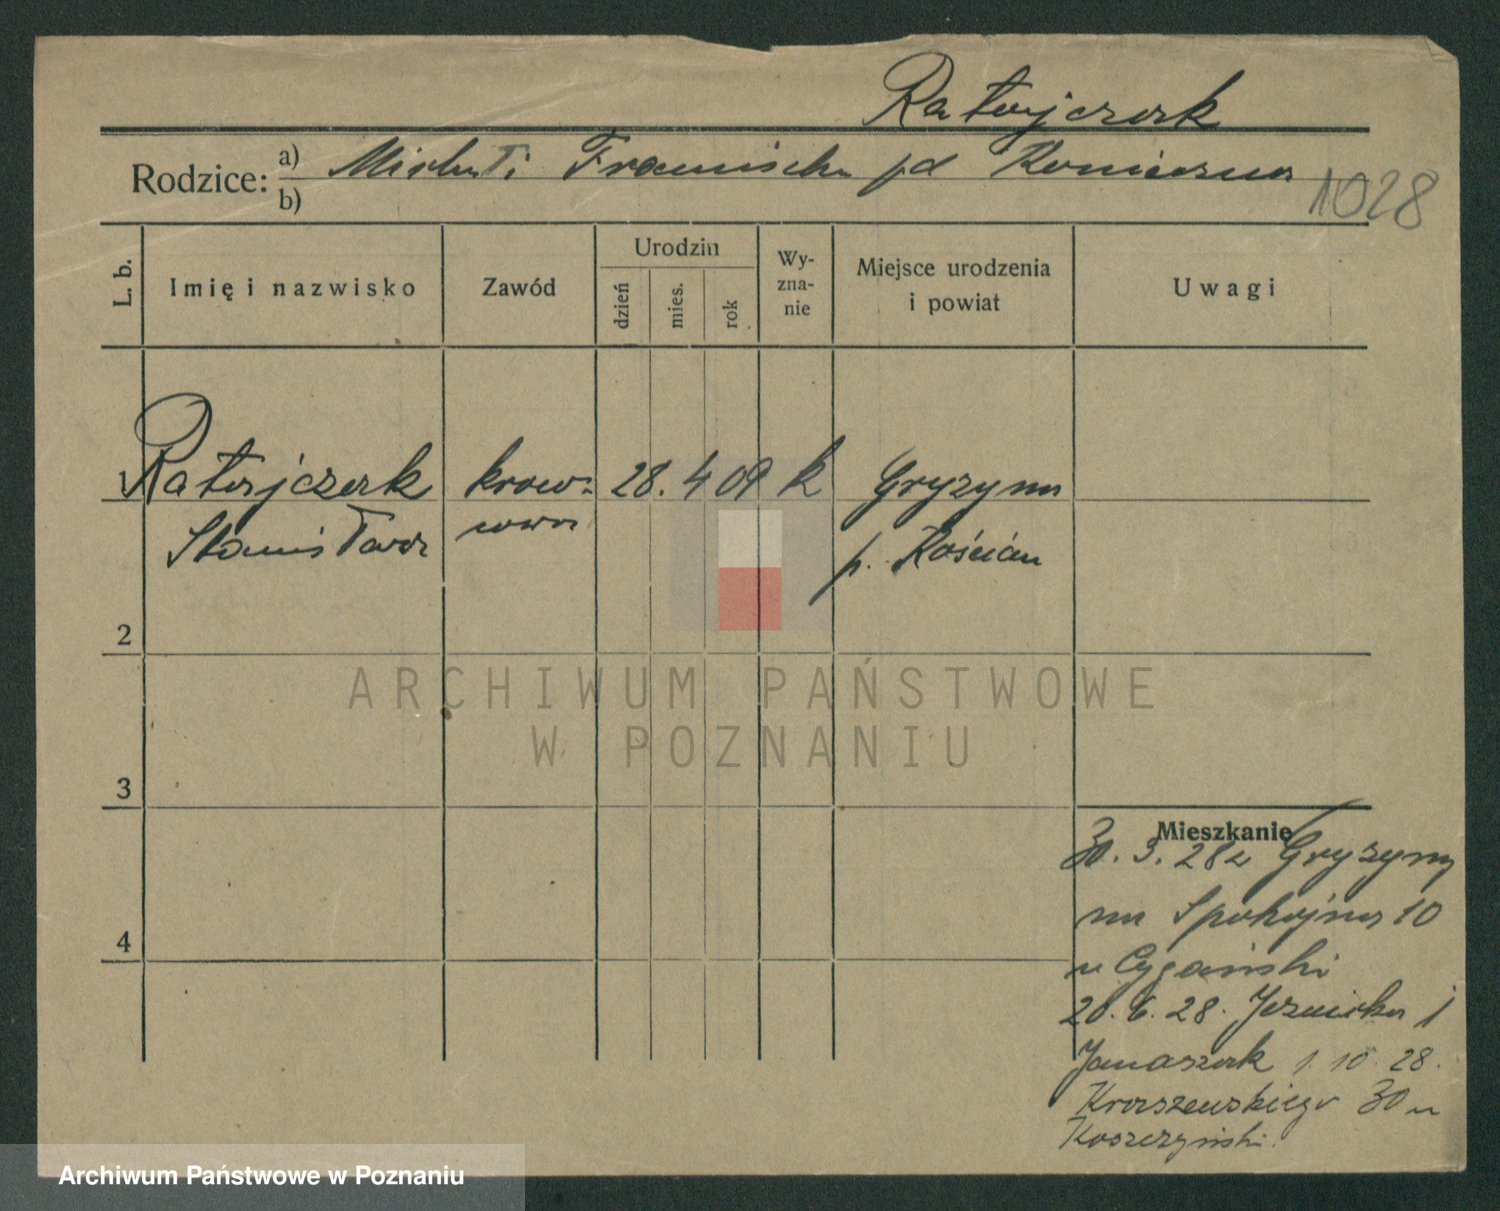 Ratajczak
Rodzice: a) Michał i Franciszka pd Konieczna
b)
1028
L. b.
Imię i nazwisko
Zawód
Urodzin
dzień
mies.
rok
Wy-
zna-
nie
Miejsce urodzenia
i powiat
Uwagi
1 Ratajczak kraw- 28. 4 09 k Gryzyna
Stanisława cowa p. Kościan
2
3
4
Mieszkanie
30. 3. 28 z Gryzyny
na Spokojna 10
u Cygański
20. 6. 28. Jeznicka 1
Janaszak 1. 10. 28.
Kraszewskiego 30 u
Koszczyński.
ARCHIWUM PAŃSTWOWE
W POZNANIU
Archiwum Państwowe w Poznaniu